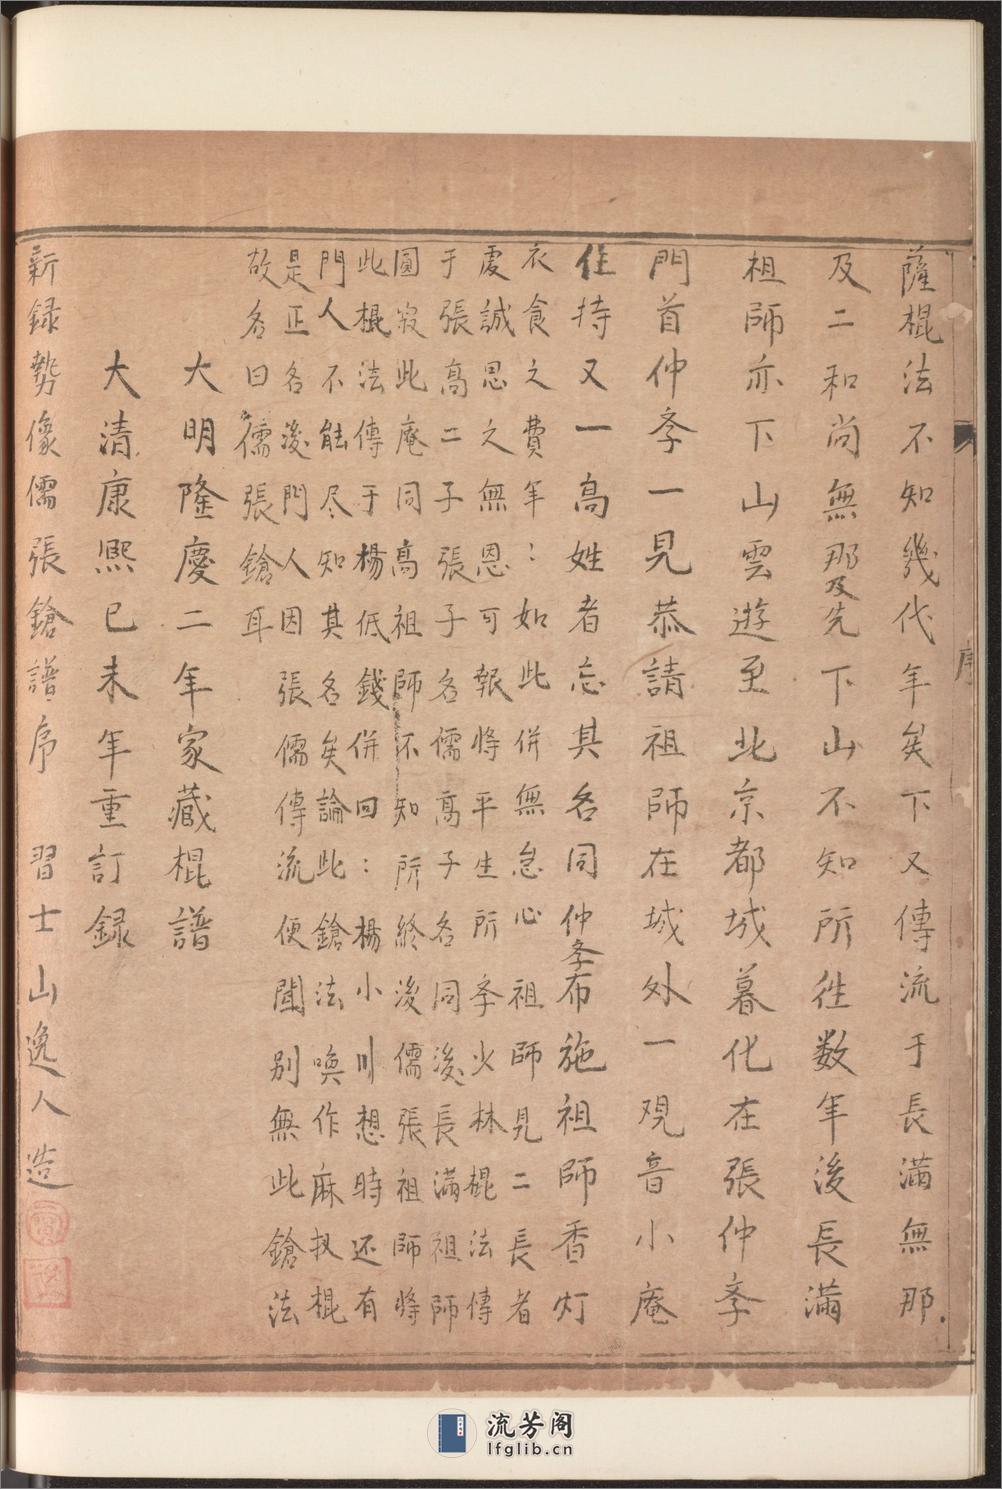 薩棍法不知幾代年矣下又傳流于長滿無那
及二和尚無那及先下山不知所徃数年後長滿
祖師亦下山雲遊至北京都城暮化在張仲季
門首仲季一見恭請祖師在城外一观音小庵
住持又一高姓者忘其名同仲季布施祖師香灯
衣食之費年：如此併無怠心祖師見二長者
處誠思之無恩可報將平生所季火林棍法傳
于張高二子張子名儒高子名同後長滿祖師
圓寂此庵同高祖師不知所終後儒張祖師將
此棍法傳于楊低錢併回：楊小川想時还有
門人不能尽知其名矣論此鎗法喚作麻扠棍
是正名後門人因張儒傳流便聞別無此鎗法
故名曰儒張鎗耳
大明隆慶二年家藏棍譜
大清康熙已未年重訂録
新録勢像儒張鎗譜序 習士山逸人造
序
流芳阁
lfglib.cn